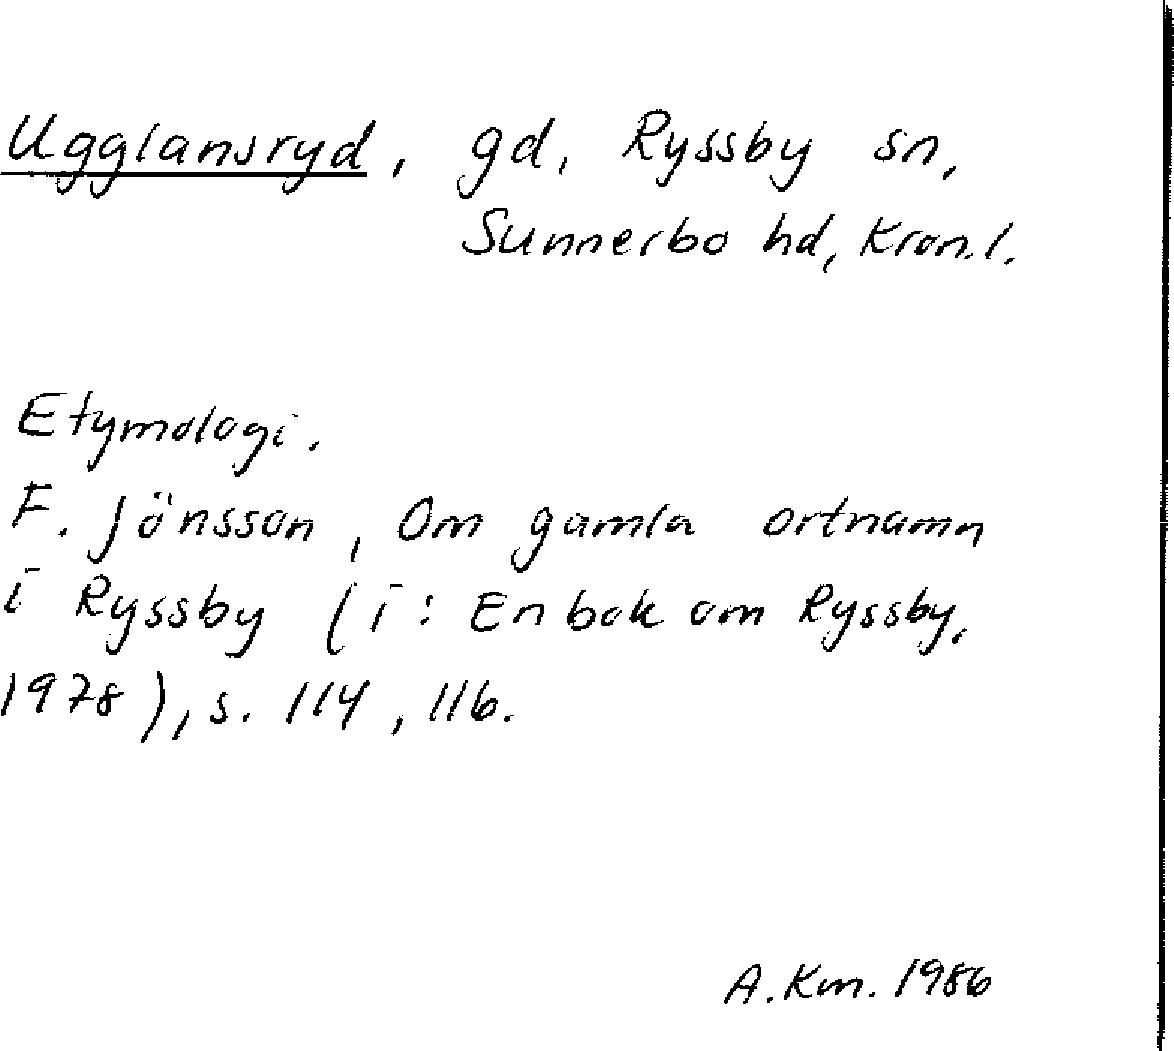 Ugglansryd, gd, Ryssby sn,
Sunnerbo hd, Kron.l.
Etymologi.
F. Jönsson, Om gamla ortnamn
i Ryssby (i: En bok om Ryssby,
1978), s. 114, 116.
A. Km. 1986